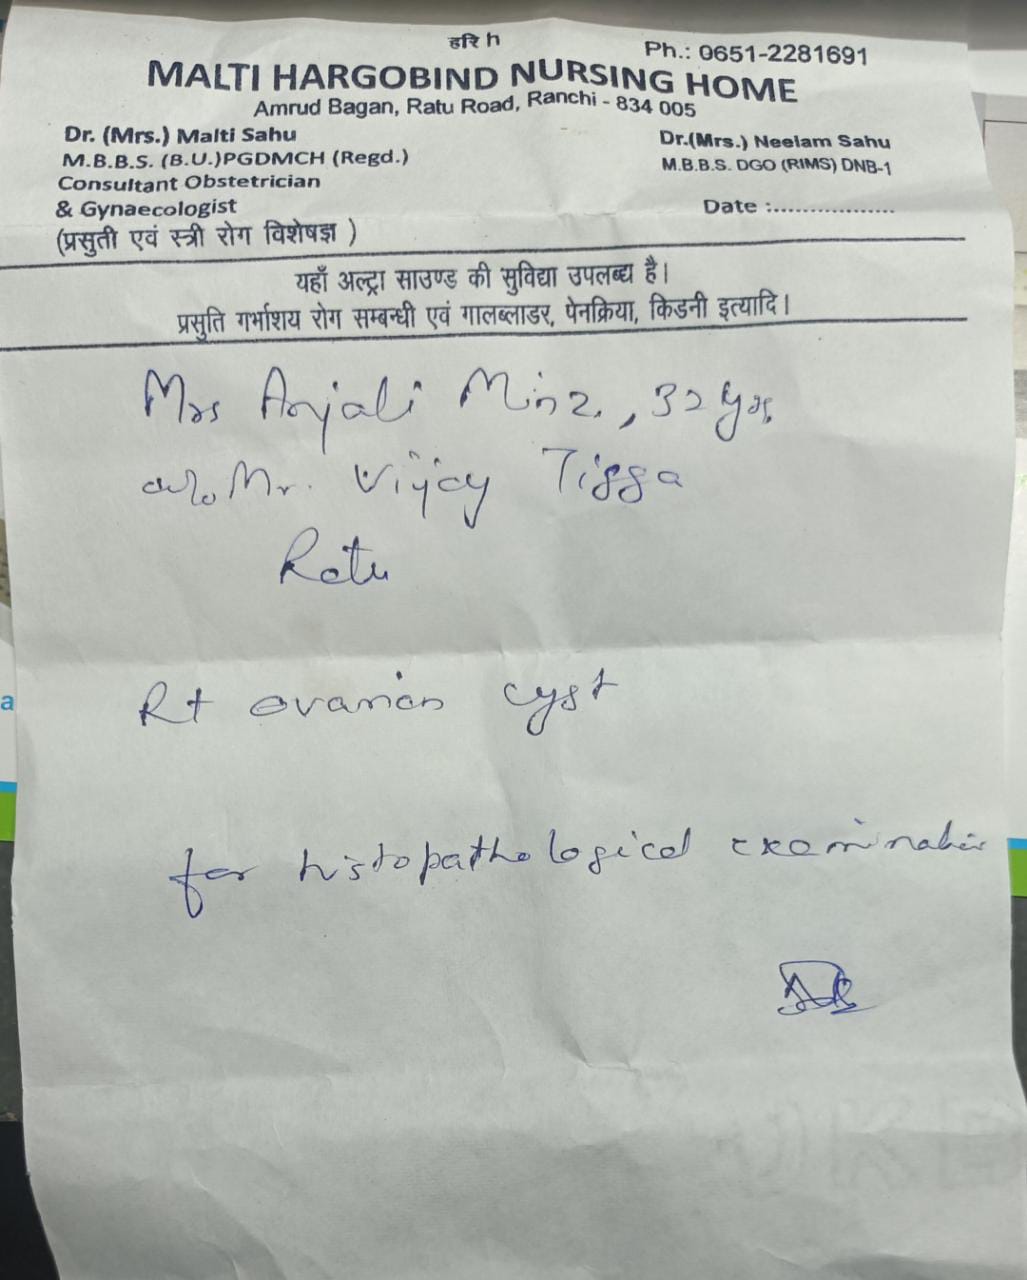 हरि ॐ
Ph.: 0651-2281691
MALTI HARGOBIND NURSING HOME
Amrud Bagan, Ratu Road, Ranchi - 834 005
Dr. (Mrs.) Malti Sahu
M.B.B.S. (B.U.)PGDMCH (Regd.)
Consultant Obstetrician
& Gynaecologist
(प्रसुती एवं स्त्री रोग विशेषज्ञ )
Dr.(Mrs.) Neelam Sahu
M.B.B.S. DGO (RIMS) DNB-1
Date :..................
यहाँ अल्ट्रा साउण्ड की सुविद्या उपलब्ध है।
प्रसुति गर्भाशय रोग सम्बन्धी एवं गालब्लाडर, पेनक्रिया, किडनी इत्यादि।
Mrs Anjali Minz, 32 yrs,
w/o Mr. Vijay Tigga
Ratu
Rt ovarian cyst
for histopathological examination
a